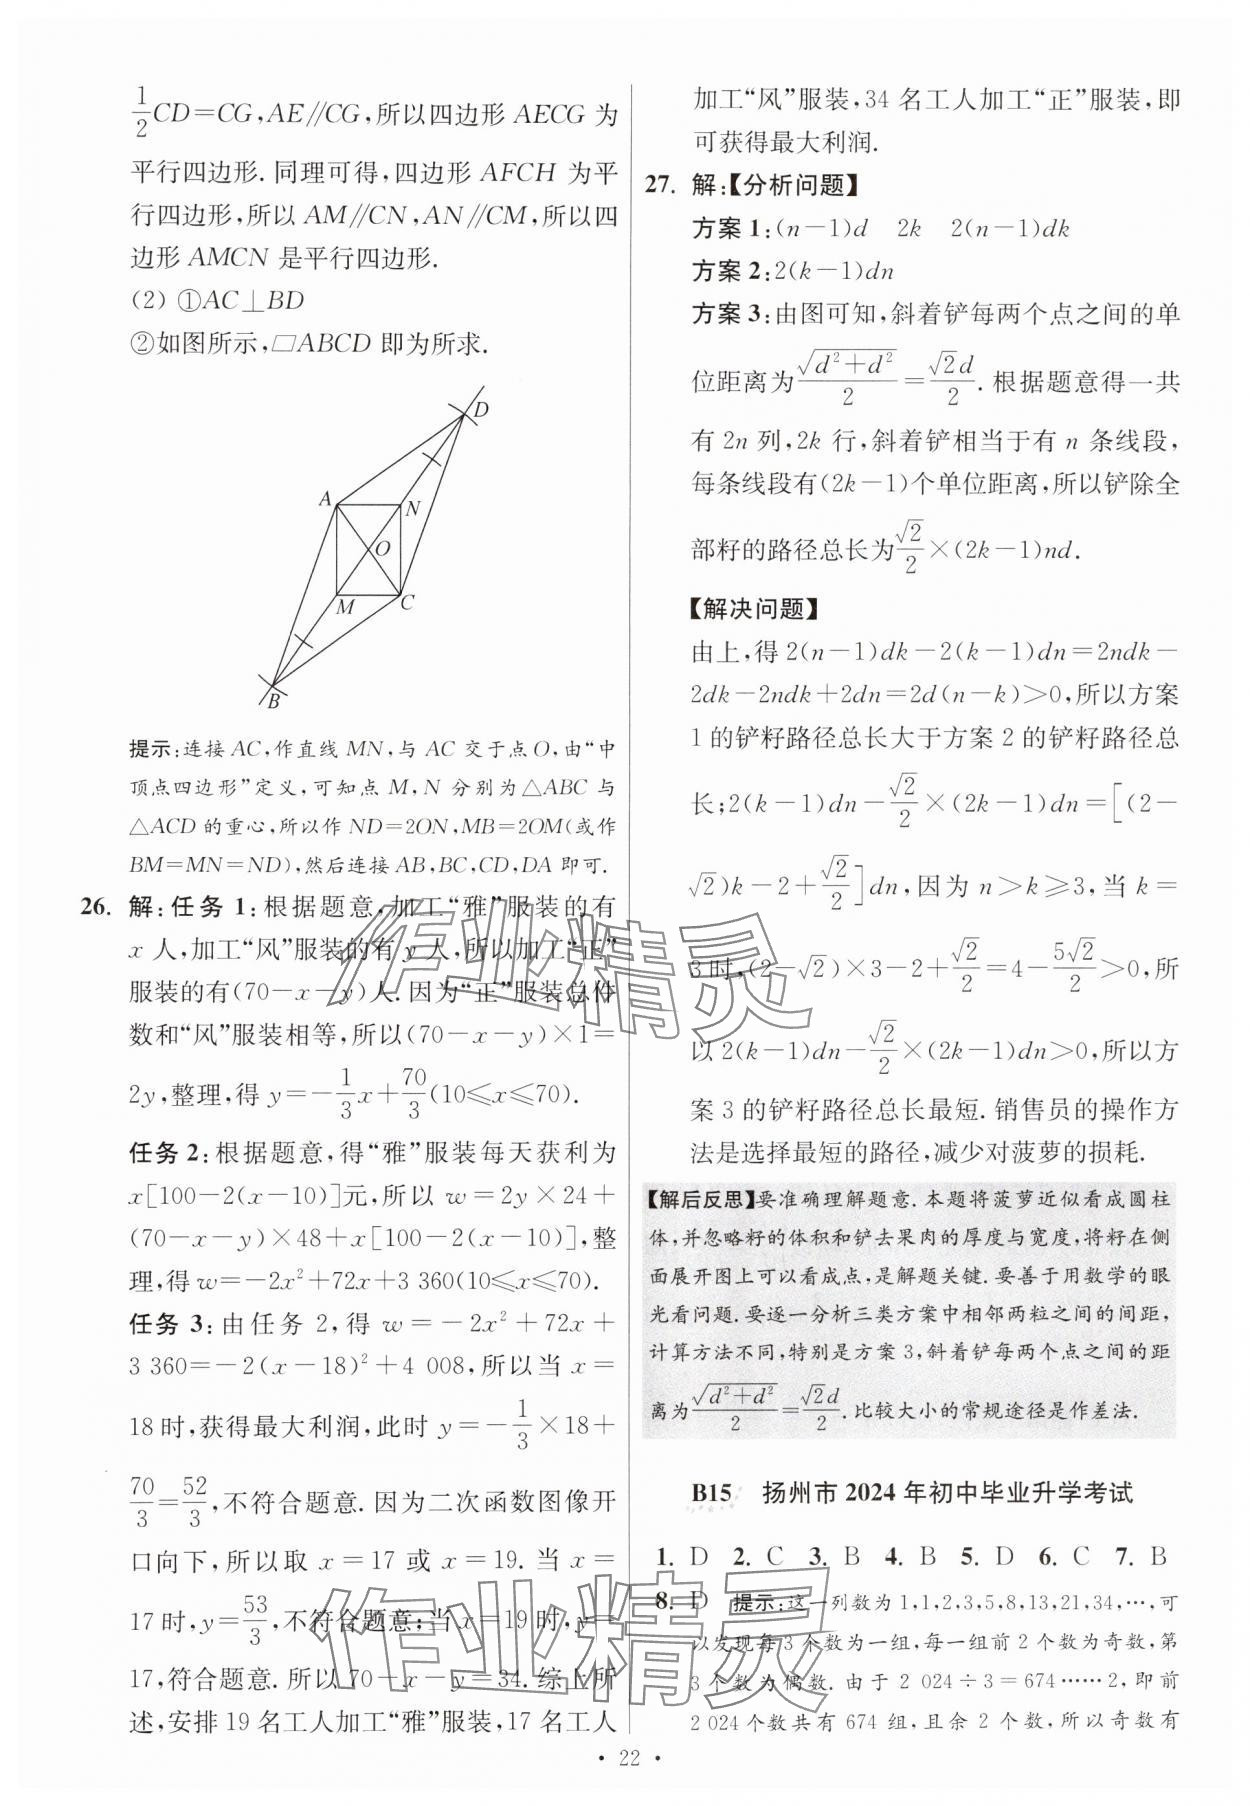 ½CD=CG,AE∥CG,所以四边形 AECG 为
平行四边形.同理可得,四边形 AFCH 为平
行四边形,所以 AM∥CN,AN∥CM,所以四
边形 AMCN 是平行四边形.
(2) ①AC⊥BD
②如图所示,▱ABCD 即为所求.
D
A
N
O
M
C
B
提示:连接 AC,作直线 MN,与 AC 交于点 O,由“中
顶点四边形”定义,可知点 M,N 分别为△ABC 与
△ACD 的重心,所以作 ND=2ON,MB=2OM(或作
BM=MN=ND),然后连接 AB,BC,CD,DA 即可.
26. 解:任务 1:根据题意,加工“雅”服装的有
x 人,加工“风”服装的有 y 人,所以加工“正”
服装的有(70-x-y)人.因为“正”服装总件
数和“风”服装相等,所以(70-x-y)×1=
2y,整理,得 y=-1/3x+70/3(10≤x≤70).
任务 2:根据题意,得“雅”服装每天获利为
x[100-2(x-10)]元,所以 w=2y×24+
(70-x-y)×48+x[100-2(x-10)],整
理,得 w=-2x²+72x+3 360(10≤x≤70).
任务 3:由任务 2,得 w=-2x²+72x+
3 360=-2(x-18)²+4 008,所以当 x=
18 时,获得最大利润,此时 y=-1/3×18+
70/3=52/3,不符合题意.因为二次函数图像开
口向下,所以取 x=17 或 x=19.当 x=
17 时,y=53/3,不符合题意;当 x=19 时,y=
17,符合题意.所以 70-x-y=34.综上所
述,安排 19 名工人加工“雅”服装,17 名工人
加工“风”服装,34 名工人加工“正”服装,即
可获得最大利润.
27. 解:【分析问题】
方案 1:(n-1)d 2k 2(n-1)dk
方案 2:2(k-1)dn
方案 3:由图可知,斜着铲每两个点之间的单
位距离为√(d²+d²)/2=√2d/2.根据题意得一共
有 2n 列,2k 行,斜着铲相当于有 n 条线段,
每条线段有(2k-1)个单位距离,所以铲除全
部籽的路径总长为√2/2×(2k-1)nd.
【解决问题】
由上,得 2(n-1)dk-2(k-1)dn=2ndk-
2dk-2ndk+2dn=2d(n-k)>0,所以方案
1 的铲籽路径总长大于方案 2 的铲籽路径总
长;2(k-1)dn-√2/2×(2k-1)dn=[(2-
√2)k-2+√2/2]dn,因为 n>k≥3,当 k=
3 时,(2-√2)×3-2+√2/2=4-5√2/2>0,所
以 2(k-1)dn-√2/2×(2k-1)dn>0,所以方
案 3 的铲籽路径总长最短.销售员的操作方
法是选择最短的路径,减少对菠萝的损耗.
【解后反思】要准确理解题意.本题将菠萝近似看成圆柱
体,并忽略籽的体积和铲去果肉的厚度与宽度,将籽在侧
面展开图上可以看成点,是解题关键.要善于用数学的眼
光看问题.要逐一分析三类方案中相邻两粒之间的间距,
计算方法不同,特别是方案 3,斜着铲每两个点之间的距
离为√(d²+d²)/2=√2d/2.比较大小的常规途径是作差法.
B15 扬州市 2024 年初中毕业升学考试
1. D 2. C 3. B 4. B 5. D 6. C 7. B
8. D 提示:这一列数为 1,1,2,3,5,8,13,21,34,…,可
以发现每 3 个数为一组,每一组前 2 个数为奇数,第
3 个数为偶数.由于 2 024÷3=674……2,即前
2 024 个数共有 674 组,且余 2 个数,所以奇数有
• 22 •
作业精灵
作业精灵